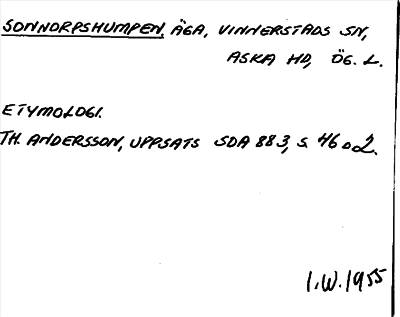 SONNORPSHUMPEN, ÄGA, VINNERSTADS SN,
ASKA HD, ÖG. L.
ETYMOLOGI.
TH. ANDERSSON, UPPSATS SDA 883, S. 46 o 2.
I.W. 1955